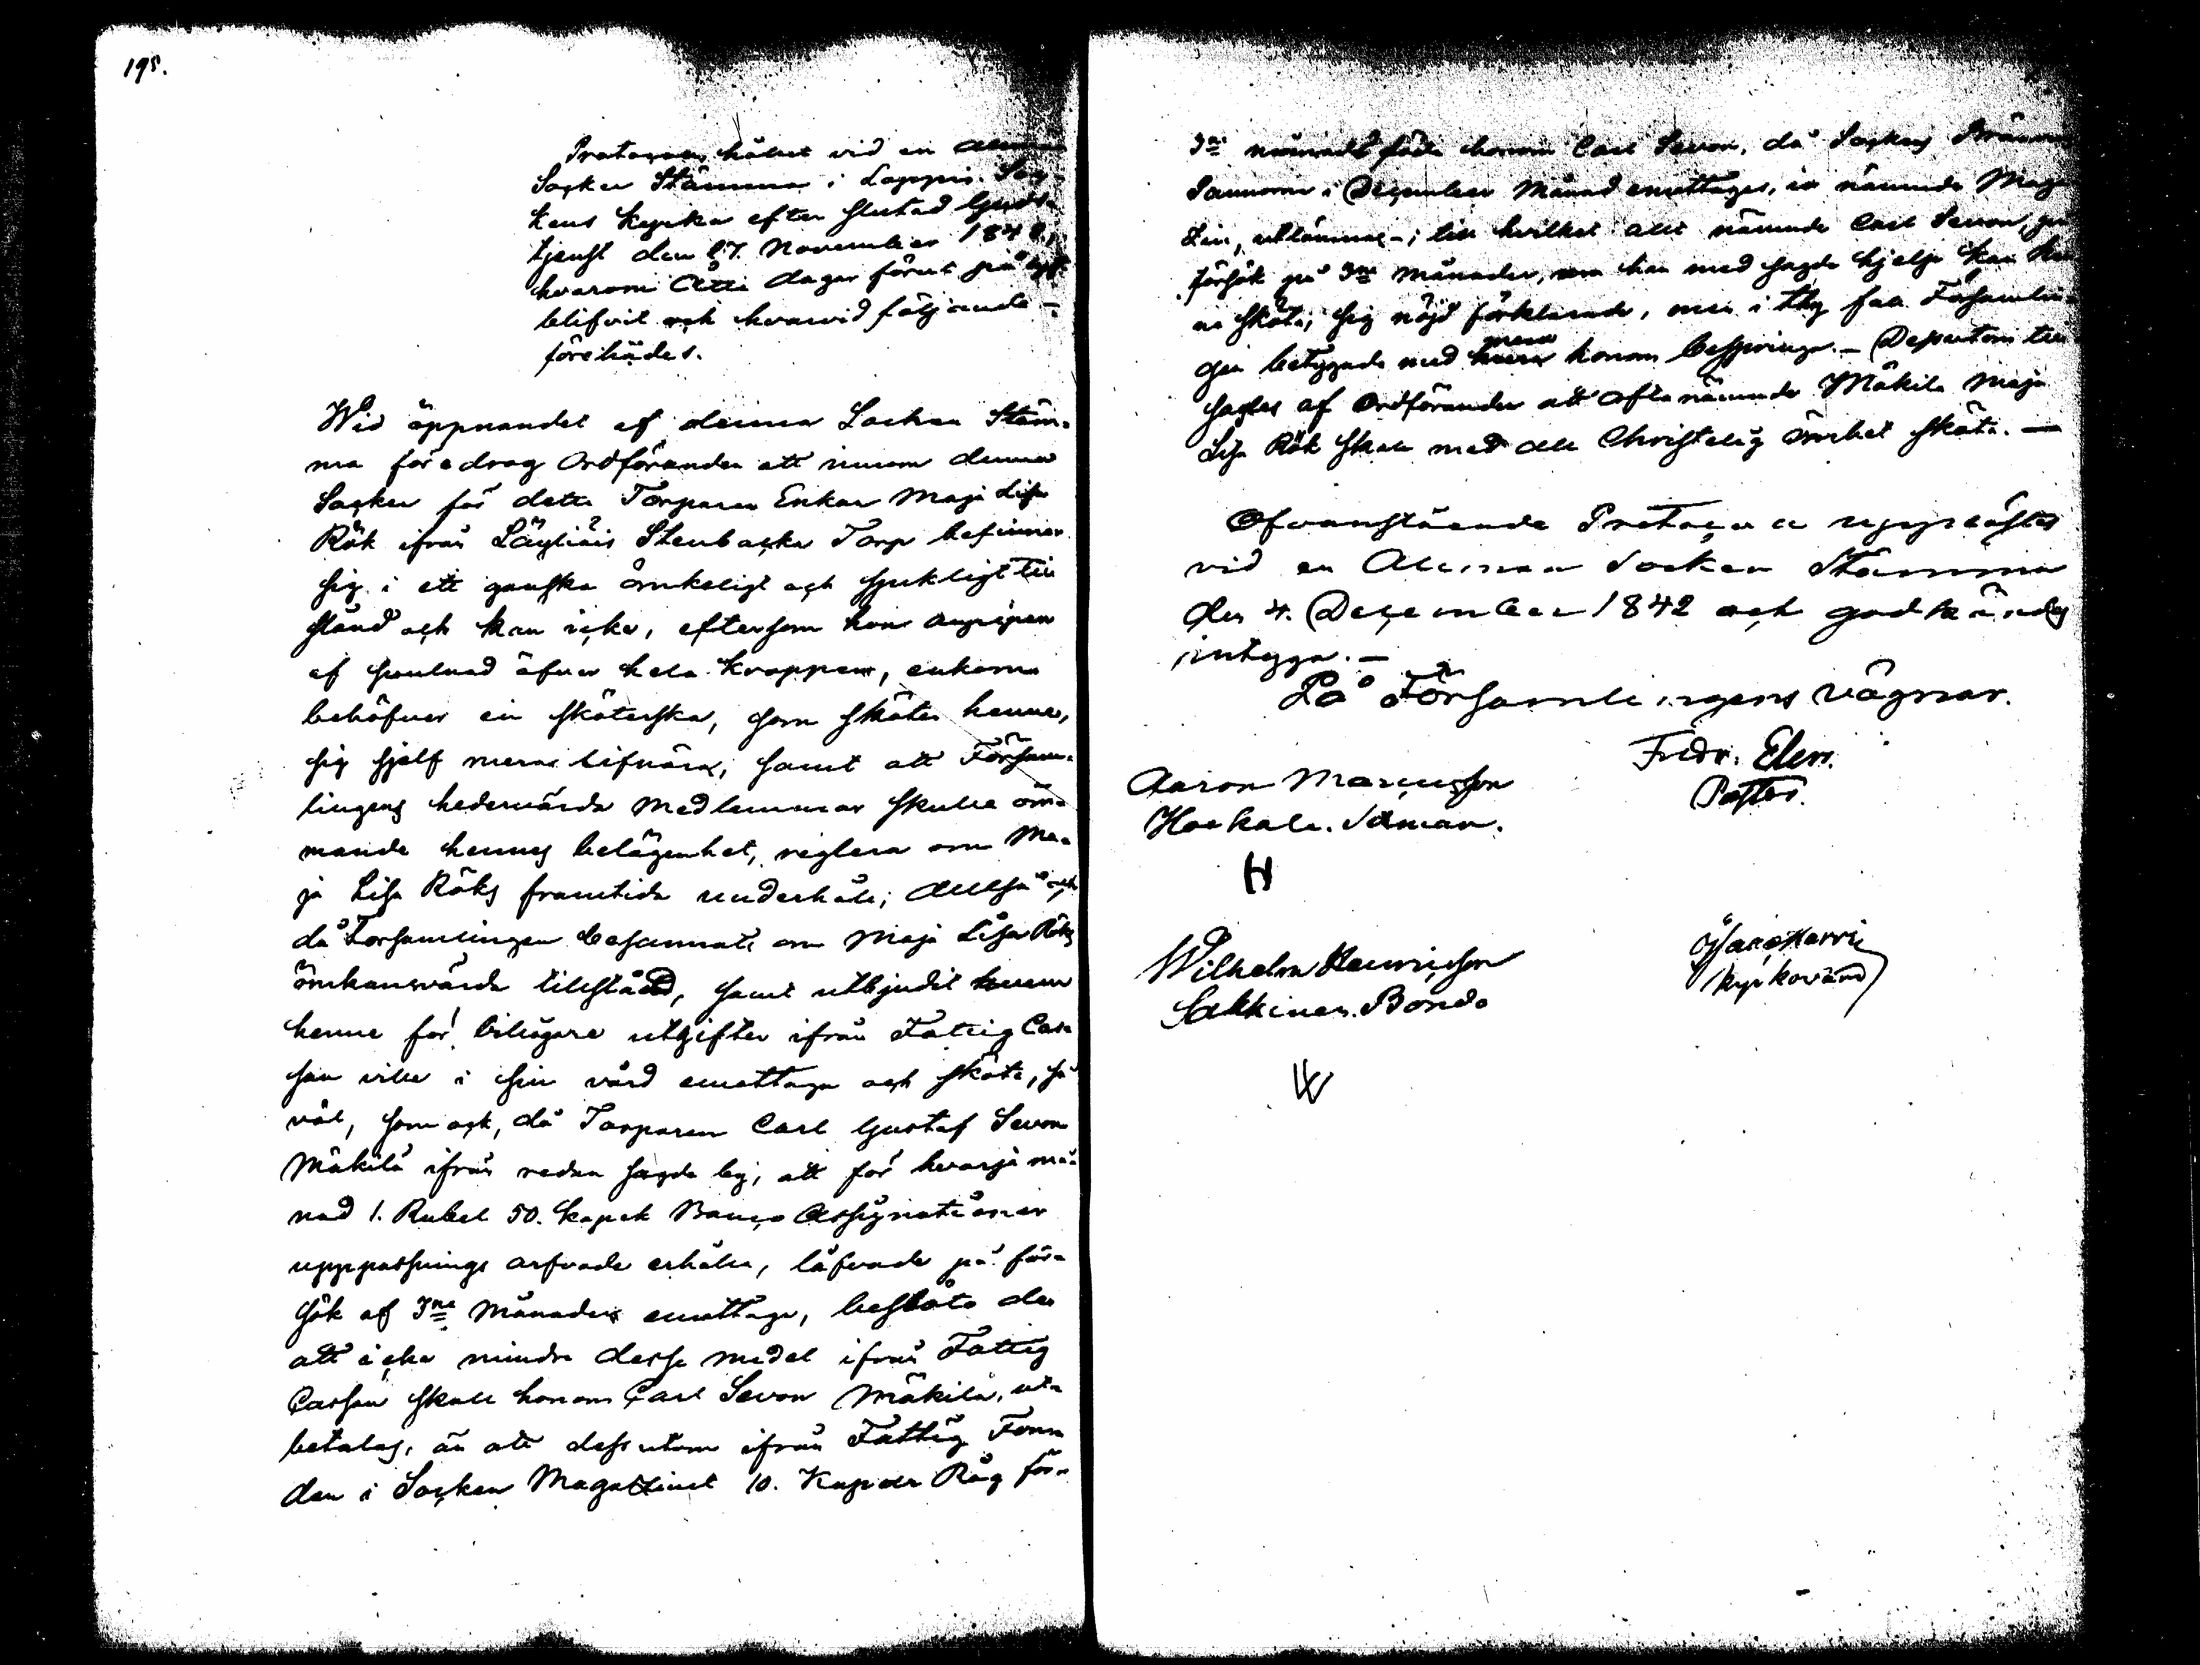 195.
Protocoll, hållet vid en Allmän
Socken Stämma i Loppis Soc-
kens Kyrka efter slutad Guds-
tjenst den 27. November 1842,
hvarom Åtta dagar förut pålyst
blifvit och hvarvid följande –
förehades.
Wid öppnandet af denna Socken Stäm-
ma föredrog Ordföranden att innom denna
Socken för detta Torpare Enkan Maja Lisa
Rök ifrån Läyliäis Stenbacka Torp befinner
sig i ett ganska ömkeligt och sjukligt till
stånd och kan icke, eftersom hon angripen
af svulnad öfver hela kroppen, enkom
behöfver en sköterska, som sköter henne,
sig sjelf mera lifnära; samt att Försam-
lingens hedervärda medlemmar skulle öm-
mande hennes belägenhet, reglera om Ma-
ja Lisa Röks framtida underhåll; Alltså och
då Församlingen besannat om Maja Lisa Röks
ömkansvärda tillstånd, samt utbjudit
henne för billigare utgifter ifrån Fattig Cas-
san ville i sin vård emottaga och sköta, så
väl, som ock, då Torparen Carl Gustaf Sevon
Mäkilä ifrån redan sagde by, att för hvarje må-
nad 1. Rubel 50. kopek Banco Assignationer
upppassnings arfvode erhålla, låfvade på för-
sök af 3ne Månader emottaga, beslöts det
att icke mindre desse medel ifrån Fattig
Cassan skall honom Carl Sevon Mäkilä, ut-
betalas, än att dessutom ifrån Fattig Fon-
den i Socken Magazinet 10. Kappar Råg för
3ne månads föda honom Carl Sevon, då Sockens
Sannorna i December Månad emottages, ur nämnde Maga-
zin, utlämnas; till hvilket allt nämnde Carl Sevon, på
försök på 3ne Månader, om han med sagde hjelp kan hen-
ne sköta, sig nöjd förklarade, men i thy fall Församlin-
gen betygade med mera honom bespringa. – Dessutom till
sades af Ordföranden att ofta nämnde Mäkilä Maja
Lisa Rök skall med all Christelig ömhet sköta. –
Ofvanstående Protocoll upplästes
vid en Allmän Socken Stämma
den 4. December 1842 och godkändes
intyga. –
På Församlingens vägnar.
Fredr. Elen.
Pastor.
Aaron Marcusson
Hoekala. Nämdm.
H
Wilhelm Henricsson
Sakkinen. Bonde
W
Kyrkovärd